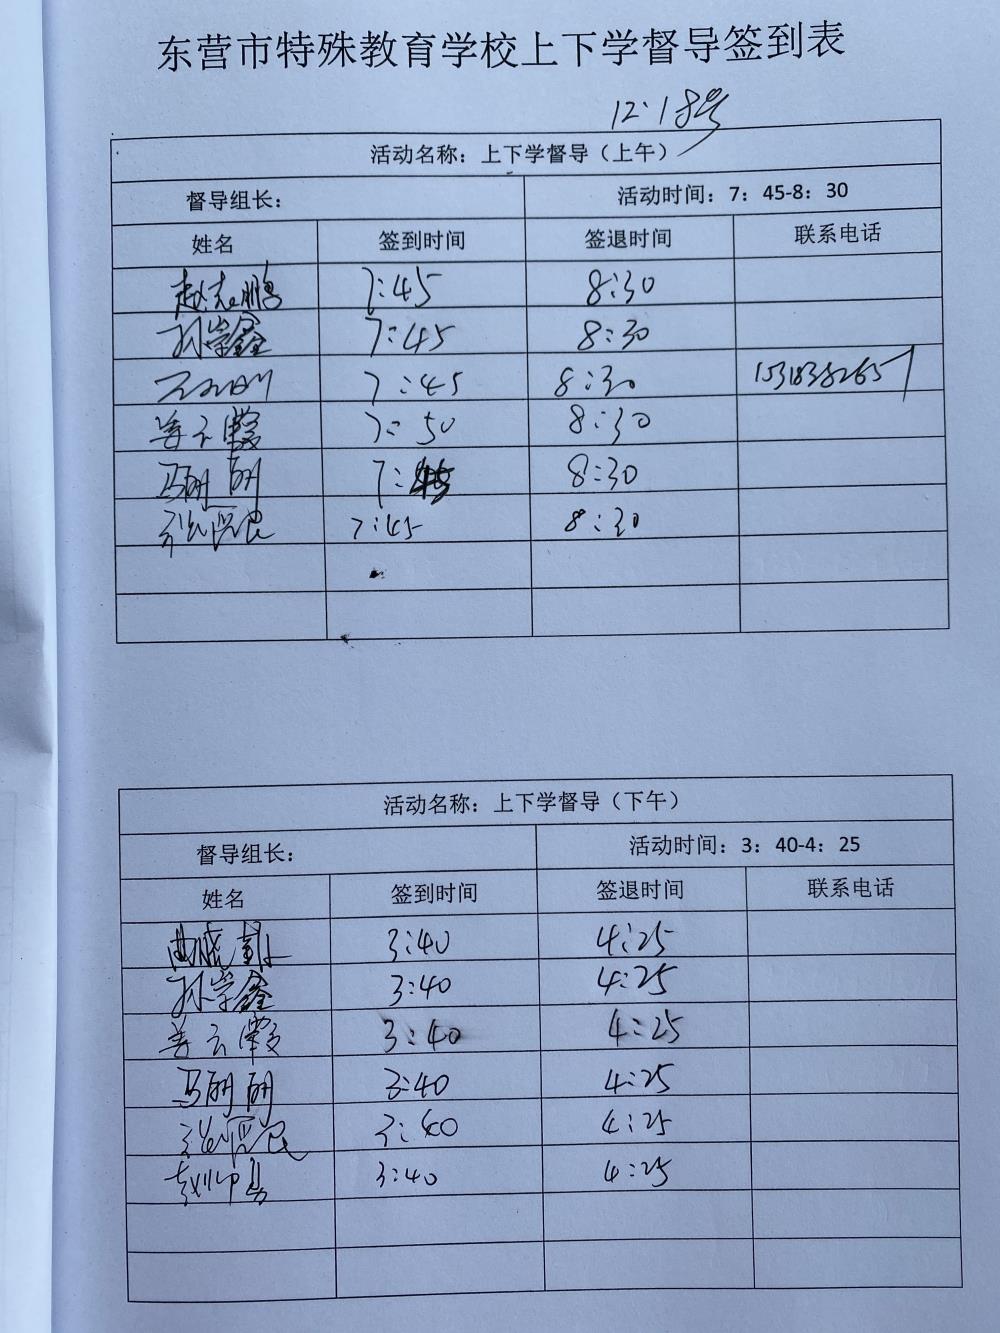 东营市特殊教育学校上下学督导签到表
12.18号
活动名称：上下学督导（上午）
督导组长： 活动时间：7：45-8：30
姓名 签到时间 签退时间 联系电话
赵志鹏 7:45 8:30
孙学鑫 7:45 8:30
7:45 8:30
姜云霞 7:50 8:30
马丽丽 7:45 8:30
7:45 8:30
活动名称：上下学督导（下午）
督导组长： 活动时间：3：40-4：25
姓名 签到时间 签退时间 联系电话
3:40 4:25
孙学鑫 3:40 4:25
姜云霞 3:40 4:25
马丽丽 3:40 4:25
3:40 4:25
3:40 4:25